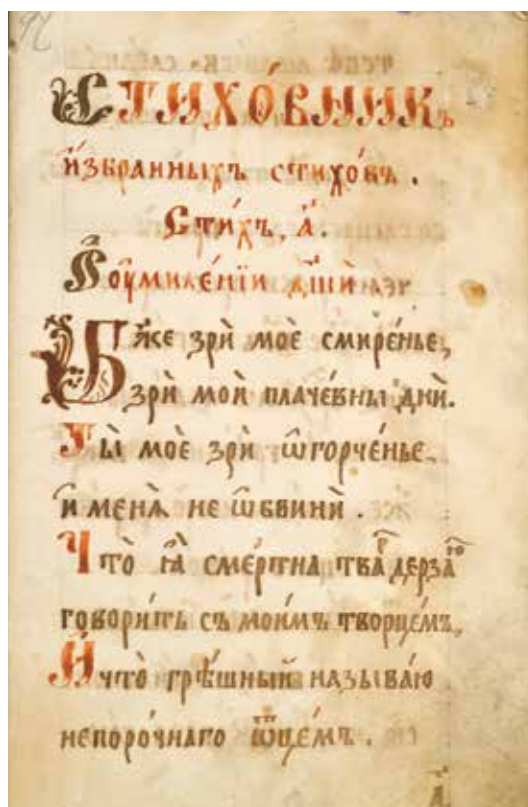 Стихо́вникъ
и҆збранныхъ стихо́въ.
Сти́хъ, а҃.
Ѡ҆ оумиле́нїи дш҃и
Бж҃е зрѝ моѐ смире́нье,
зрѝ моѝ плаче́вны днѝ.
Ты̀ моѐ зрѝ ѡ҆горче́нье
и менѧ̀ не ѡ҆бвинѝ.
Что̀ ꙗ҆̀ сме́ртна тва́ дерза́
говори́ть съ мои́мъ творце́мъ,
И҆ что̀ грѣ́шный называ́ю
непоро́чнаго ѿце́мъ.